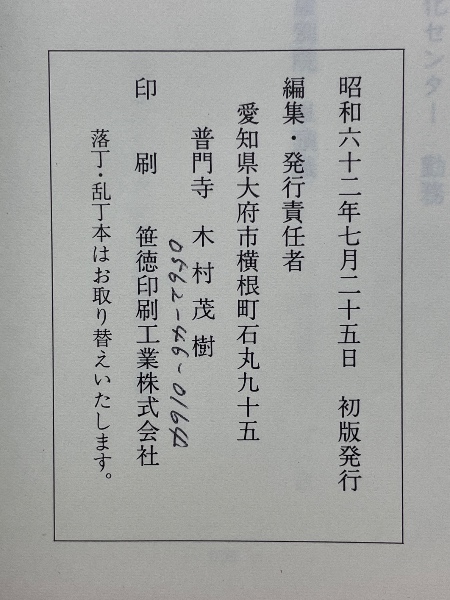 昭和六十二年七月二十五日　初版発行
編集・発行責任者
愛知県大府市横根町石丸九十五
普門寺　木村茂樹
0562-46-0164
印　刷　笹徳印刷工業株式会社
落丁・乱丁本はお取り替えいたします。
化センター　勤務